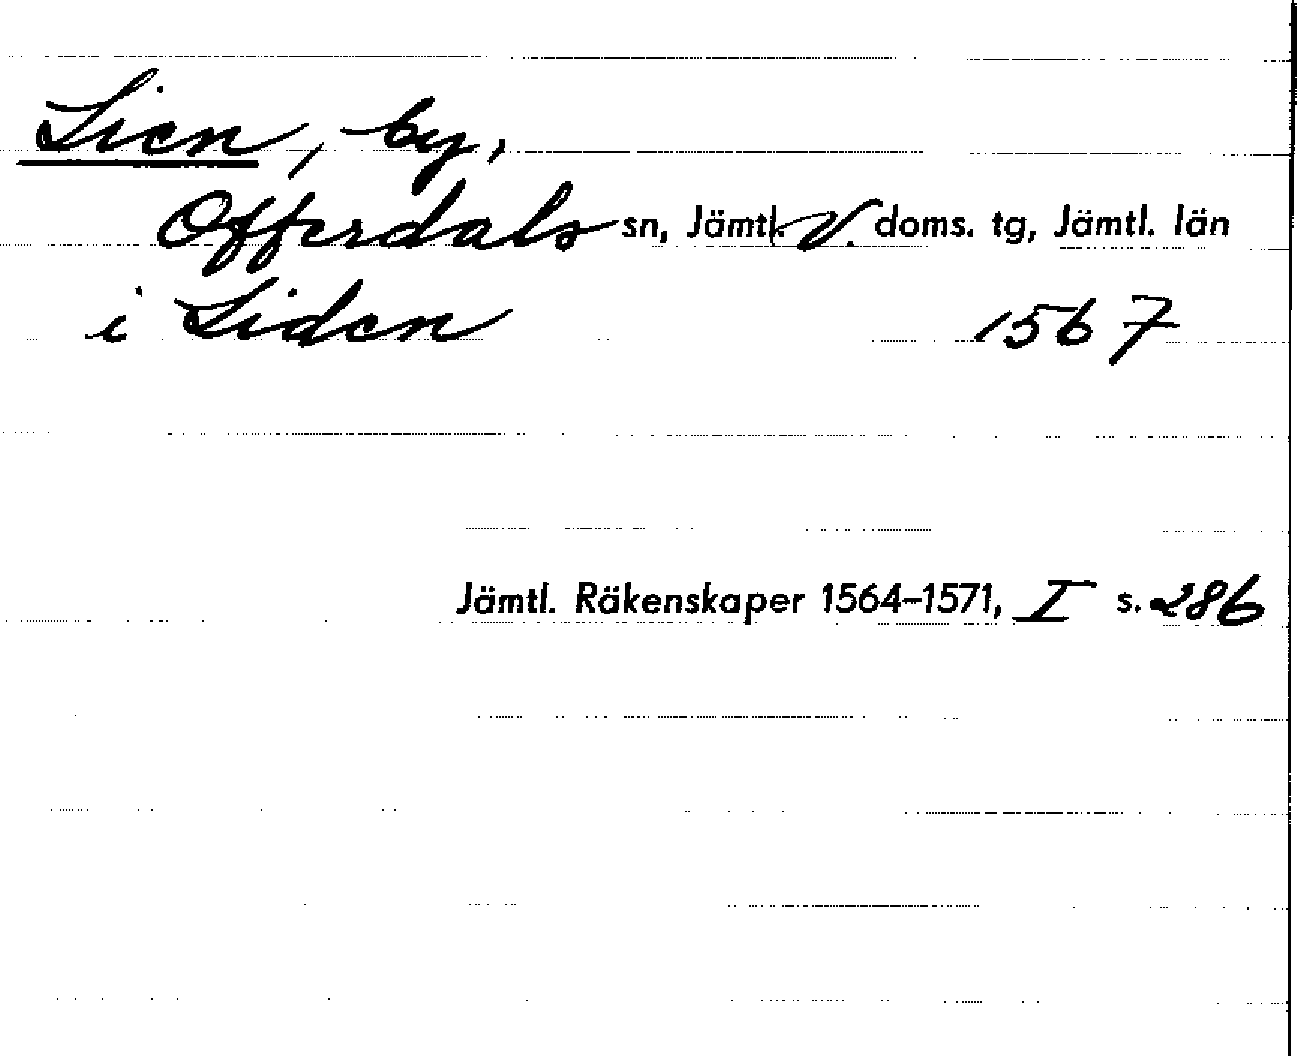 Lien, by,
Offerdals sn, Jämtl. V. doms. tg, Jämtl. län
i Liden 1567
Jämtl. Räkenskaper 1564-1571, I s. 286